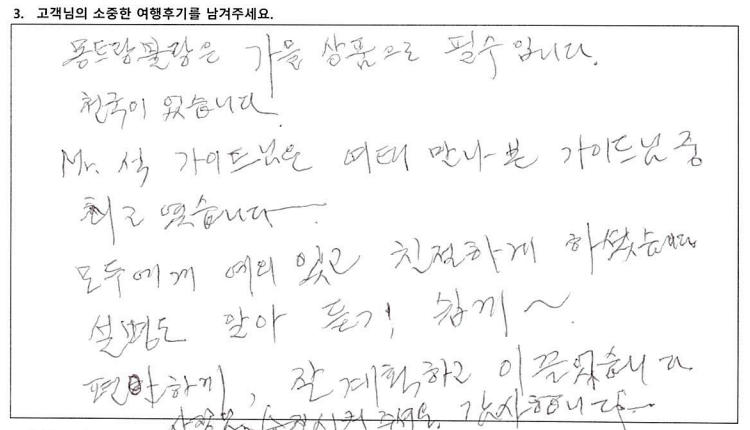 3. 고객님의 소중한 여행후기를 남겨주세요.
몽트랑블랑은 가을 상품으로 필수입니다.
천국이 있습니다.
Mr. 석 가이드님은 여태 만나본 가이드님 중
최고였습니다~.
모두에게 예의 있고 친절하게 하셨습니다
설명도 알아 듣기 쉽게~.
편안하게, 잘 계획하고 이끌었습니다
승진시켜 주세요. 감사합니다~